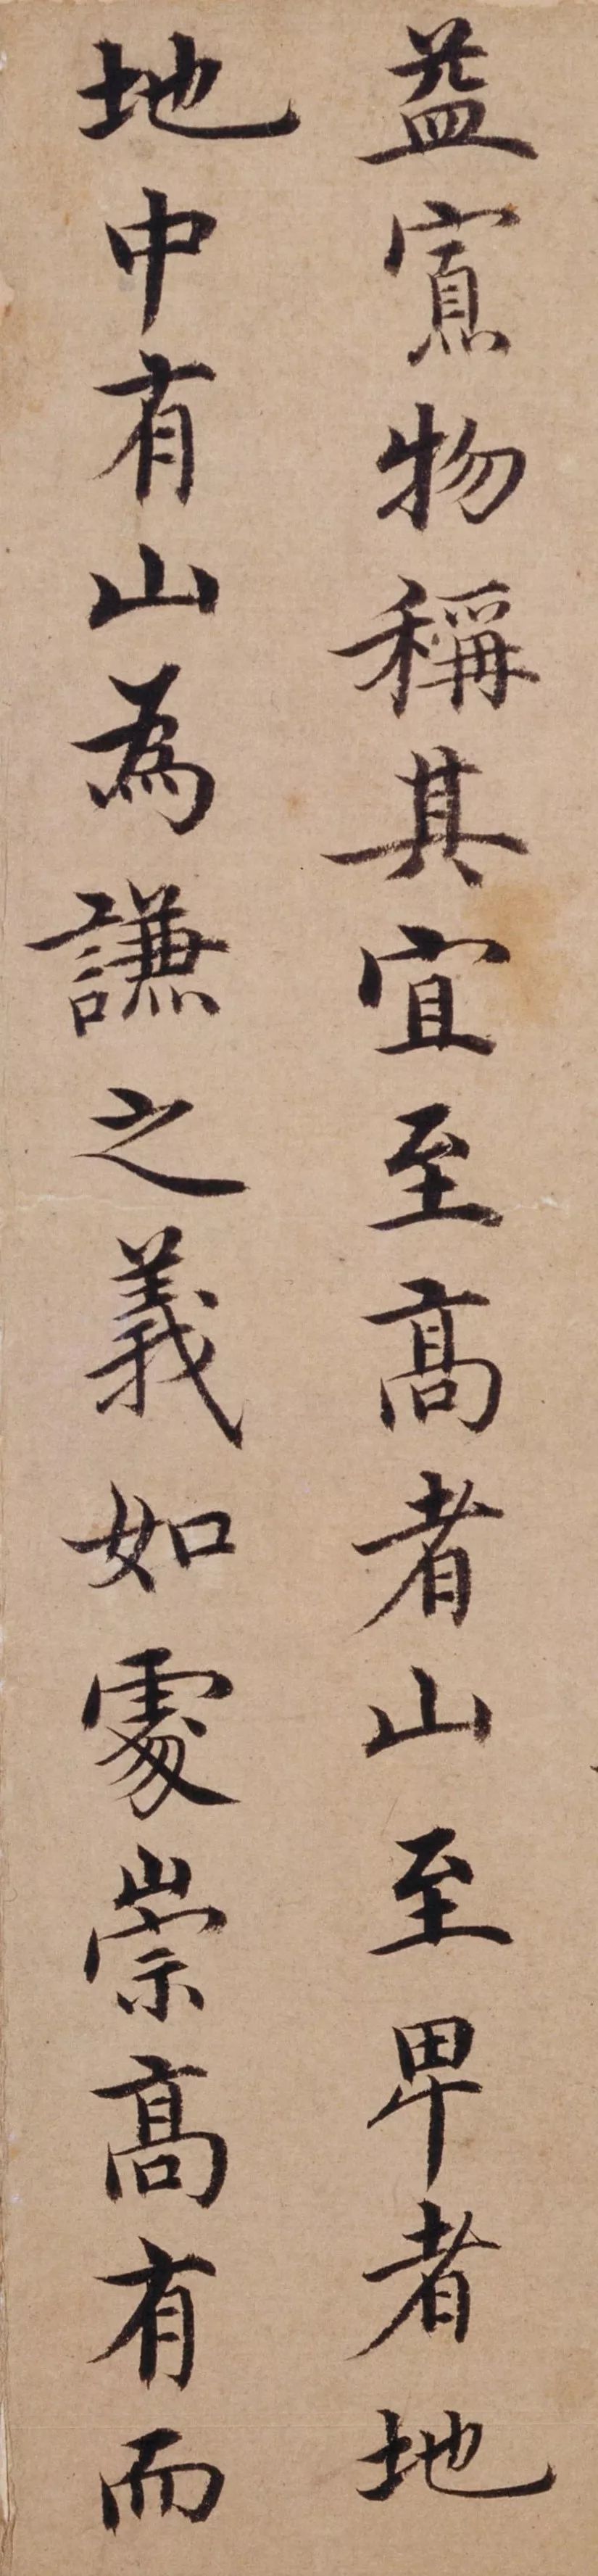 益寡物稱其宜至高者山至卑者地
地中有山為謙之義如處崇高有而